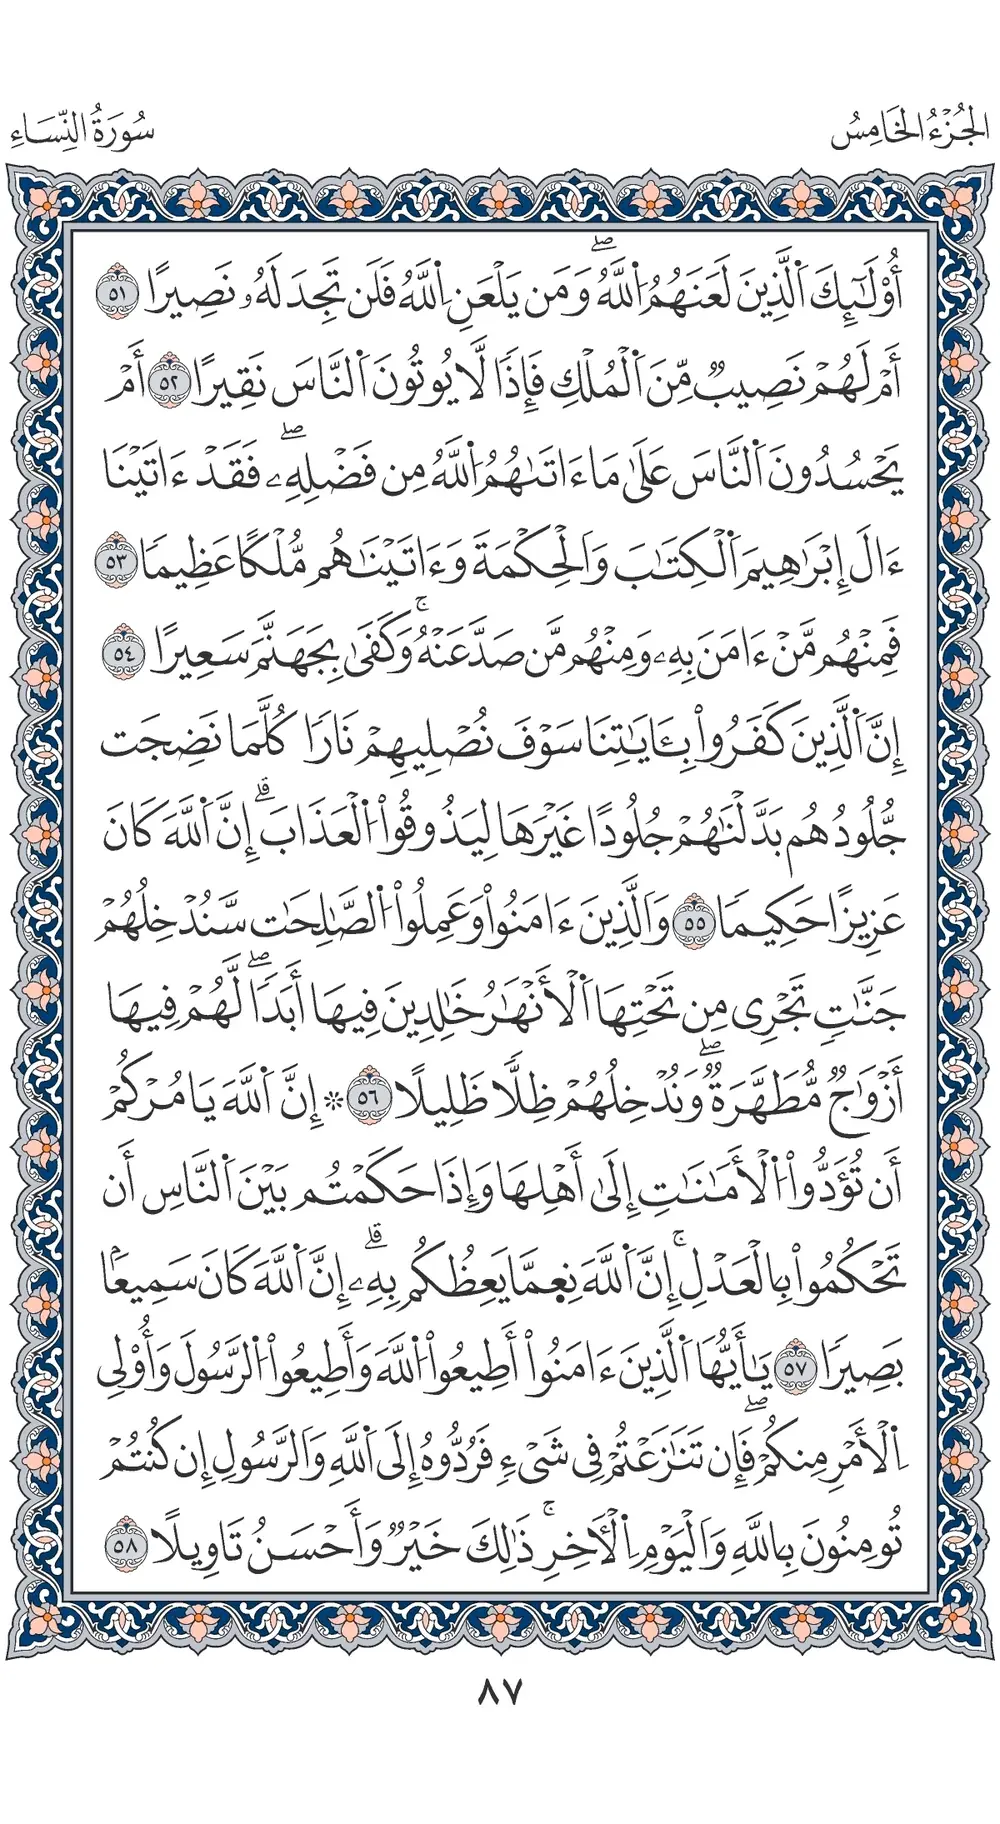 الجُزْءُ الخَامِسُ
سُورَةُ النِّسَاءِ
أُوْلَٰٓئِكَ اَ۬لَّذِينَ لَعَنَهُمُ اُ۬للَّهُۖ وَمَن يَلْعَنِ اِ۬للَّهُ فَلَن تَجِدَ لَهُۥ نَصِيرًا ٥١
أَمْ لَهُمْ نَصِيبٌ مِّنَ اَ۬لْمُلْكِ فَإِذًا لَّا يُوتُونَ اَ۬لنَّاسَ نَقِيرًا ٥٢ أَمْ
يَحْسُدُونَ اَ۬لنَّاسَ عَلَىٰ مَا ءَاتَىٰهُمُ اُ۬للَّهُ مِن فَضْلِهِۦۖ فَقَدْ ءَاتَيْنَا
ءَالَ إِبْرَٰهِيمَ اَ۬لْكِتَٰبَ وَالْحِكْمَةَ وَءَاتَيْنَٰهُم مُّلْكًا عَظِيمًا ٥٣
فَمِنْهُم مَّنْ ءَامَنَ بِهِۦ وَمِنْهُم مَّن صَدَّ عَنْهُۚ وَكَفَىٰ بِجَهَنَّمَ سَعِيرًا ٥٤
إِنَّ اَ۬لَّذِينَ كَفَرُواْ بِـَٔايَٰتِنَا سَوْفَ نُصْلِيهِمْ نَارًا كُلَّمَا نَضِجَت
جُّلُودُهُم بَدَّلْنَٰهُمْ جُلُودًا غَيْرَهَا لِيَذُوقُواْ اُ۬لْعَذَابَۗ إِنَّ اَ۬للَّهَ كَانَ
عَزِيزًا حَكِيمًا ٥٥ وَالَّذِينَ ءَامَنُواْ وَعَمِلُواْ اُ۬لصَّٰلِحَٰت سَّنُدْخِلُهُمْ
جَنَّٰتٍ تَجْرِى مِن تَحْتِهَا اَ۬لْأَنْهَٰرُ خَٰلِدِينَ فِيهَا أَبَدًاۖ لَّهُمْ فِيهَا
أَزْوَٰجٌ مُّطَهَّرَةٌۖ وَنُدْخِلُهُمْ ظِلًّا ظَلِيلًا ٥٦ ۞ إِنَّ اَ۬للَّهَ يَامُرْكُمْ
أَن تُؤَدُّواْ اُ۬لْأَمَٰنَٰتِ إِلَىٰ أَهْلِهَا وَإِذَا حَكَمْتُم بَيْنَ اَ۬لنَّاسِ أَن
تَحْكُمُواْ بِالْعَدْلِۚ إِنَّ اَ۬للَّهَ نِعِمَّا يَعِظُكُم بِهِۦۗ إِنَّ اَ۬للَّهَ كَانَ سَمِيعًۢا
بَصِيرًا ٥٧ يَٰٓأَيُّهَا اَ۬لَّذِينَ ءَامَنُواْ أَطِيعُواْ اُ۬للَّهَ وَأَطِيعُواْ اُ۬لرَّسُولَ وَأُوْلِى
اِ۬لْأَمْرِ مِنكُمْۖ فَإِن تَنَٰزَعْتُمْ فِى شَىْءٍ فَرُدُّوهُ إِلَى اَ۬للَّهِ وَالرَّسُولِ إِن كُنتُمْ
تُومِنُونَ بِاللَّهِ وَالْيَوْمِ اِ۬لْأٓخِرِۚ ذَٰلِكَ خَيْرٌ وَأَحْسَنُ تَاوِيلًا ٥٨
٨٧